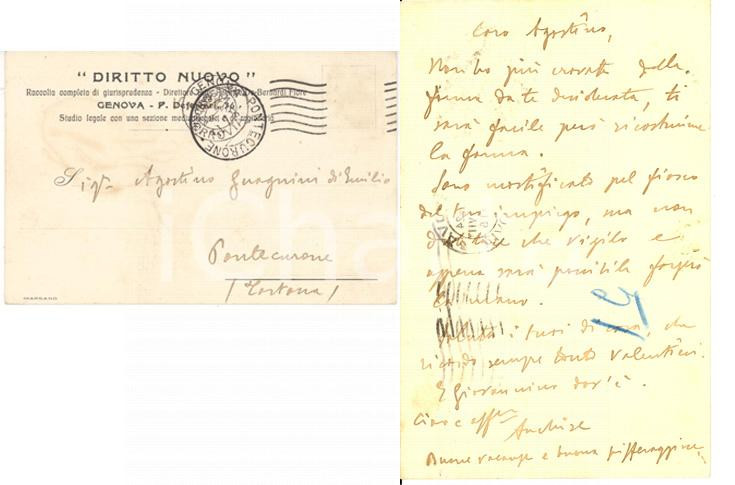 " DIRITTO NUOVO "
Raccolta completa di giurisprudenza - Bernardi Fiore
GENOVA - P.
Studio legale con una sezione
GENOVA
PONTECURONE
Sigr Agostino Guagnini di Emilio
Pontecurone
(Tortona)
MARSANO
Caro Agostino,
Non ho più crovatte della
forma da te desiderata, ti
sarà facile però ricostruire
la forma.
Sono mortificato pel fiasco
del tuo impiego, ma non
che vigilo e
appena sarà possibile
i tuoi di casa, che
ricordo sempre tanto
E Giovannino dov'è.
Ciao e aff
Anchise
Buone vacanze e buona